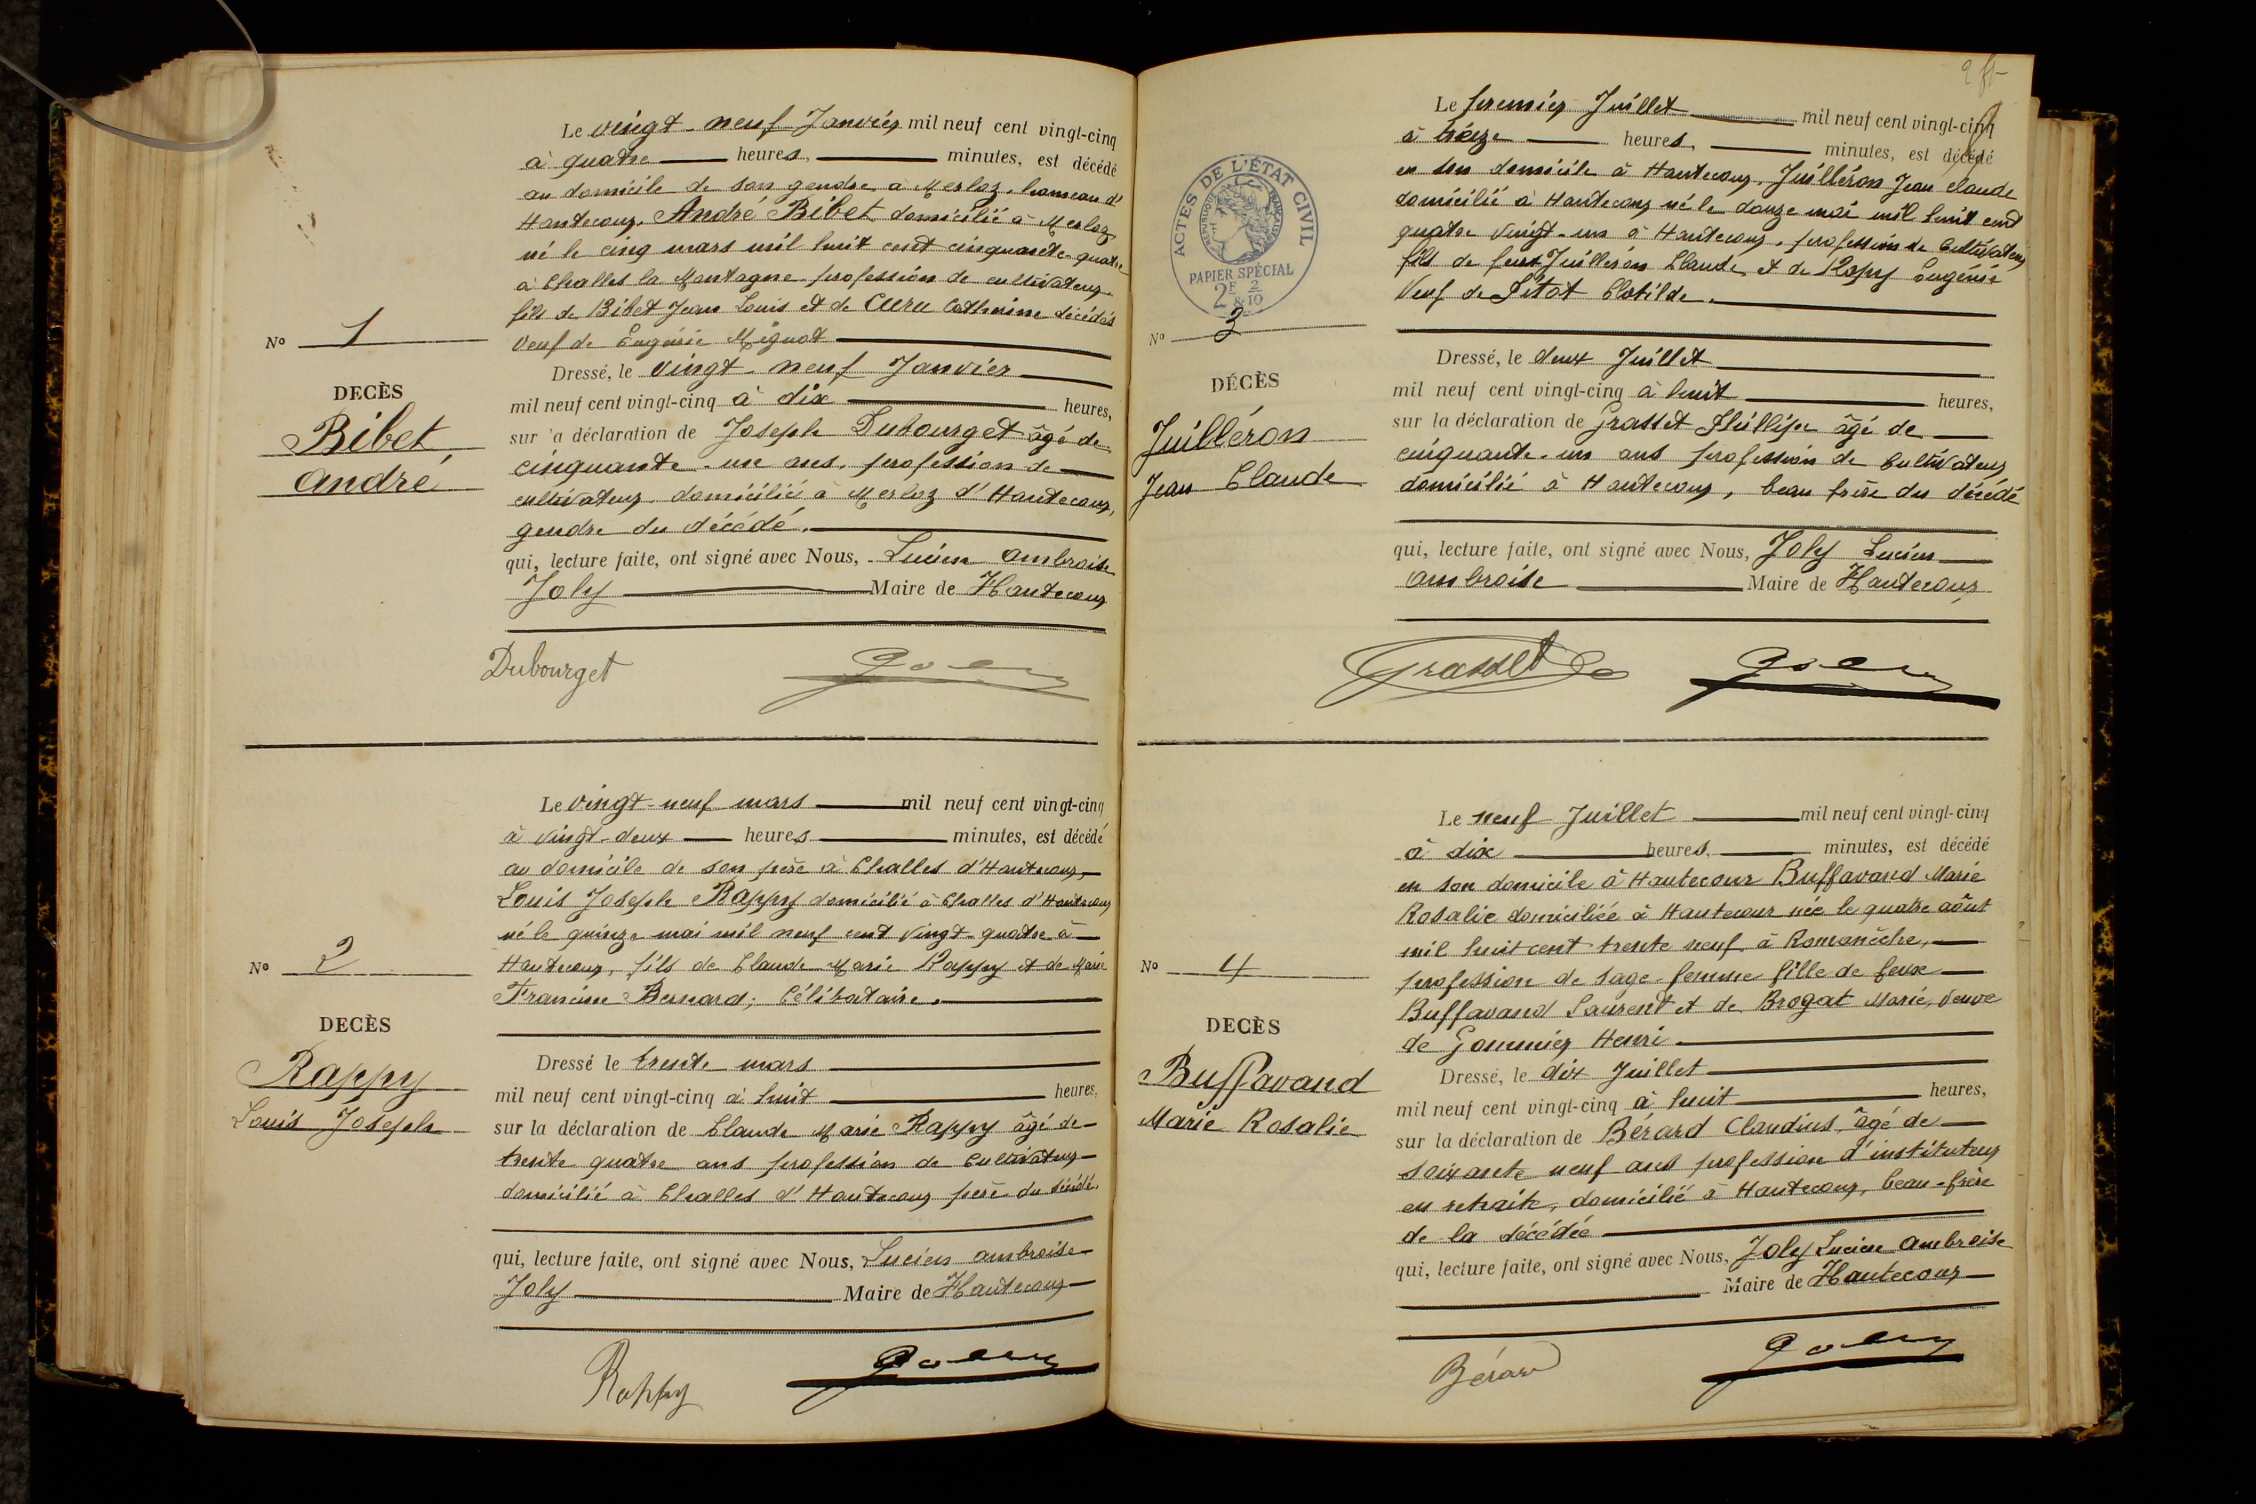 Le vingt-neuf Janvier mil neuf cent vingt-cinq
à quatre heures, minutes, est décédé
au domicile de son gendre à Merloz, hameau d'
Hautecour, André Bibet domicilié à Merloz
né le cinq mars mil huit cent cinquante-quatre
à Challes la Montagne profession de cultivateur
fils de Bibet Jean Louis et de Catherine décédés
Veuf de Eugénie Mignot
No 1
DECÈS
Bibet
André
Dressé, le vingt-neuf Janvier
mil neuf cent vingt-cinq à dix heures,
sur la déclaration de Joseph Dubourget âgé de
cinquante-un ans, profession de
cultivateur domicilié à Merloz d'Hautecour,
gendre du décédé.
qui, lecture faite, ont signé avec Nous, Lucien Ambroise
Joly Maire de Hautecour
Dubourget Joly
Le vingt-neuf mars mil neuf cent vingt-cinq
à vingt-deux heures minutes, est décédé
au domicile de son père à Challes d'Hautecour,
Louis Joseph Rappy domicilié à Challes d'Hautecour
né le quinze mai mil neuf cent vingt-quatre à
Hautecour, fils de Claude Marie Rappy et de Marie
Francine Bernard; Célibataire.
No 2
DECÈS
Rappy
Louis Joseph
Dressé le trente mars
mil neuf cent vingt-cinq à huit heures,
sur la déclaration de Claude Marie Rappy âgé de
trente quatre ans profession de Cultivateur
domicilié à Challes d'Hautecour père du décédé.
qui, lecture faite, ont signé avec Nous, Lucien Ambroise
Joly Maire de Hautecour
Rappy Joly
ACTES DE L'ÉTAT CIVIL
RÉPUBLIQUE FRANÇAISE
PAPIER SPÉCIAL
2F & 2/10
Le premier Juillet mil neuf cent vingt-cinq
à treize heures, minutes, est décédé
en son domicile à Hautecour, Juilléron Jean Claude
domicilié à Hautecour né le douze mai mil huit cent
quatre vingt-un à Hautecour, profession de Cultivateur
fils de feux Juilléron Claude et de Rapy Eugénie
Veuf de Pitot Clotilde.
No 3
DÉCÈS
Juilléron
Jean Claude
Dressé, le deux Juillet
mil neuf cent vingt-cinq à huit heures,
sur la déclaration de Grasset Phillipe âgé de
cinquante-un ans profession de Cultivateur
domicilié à Hautecour, beau frère du décédé
qui, lecture faite, ont signé avec Nous, Joly Lucien
Ambroise Maire de Hautecour
Grasset Joly
Le neuf Juillet mil neuf cent vingt-cinq
à dix heures, minutes, est décédé
en son domicile à Hautecour Buffavand Marie
Rosalie domiciliée à Hautecour née le quatre août
mil huit cent trente neuf à Romanèche,
profession de sage-femme fille de feux
Buffavand Laurent et de Brogat Marie, Veuve
de Gommier Henri
No 4
DECÈS
Buffavand
Marie Rosalie
Dressé, le dix Juillet
mil neuf cent vingt-cinq à huit heures,
sur la déclaration de Bérard Claudius, âgé de
soixante neuf ans profession d'instituteur
en retraite, domicilié à Hautecour, beau-frère
de la décédée
qui, lecture faite, ont signé avec Nous, Joly Lucien Ambroise
Maire de Hautecour
Bérard Joly